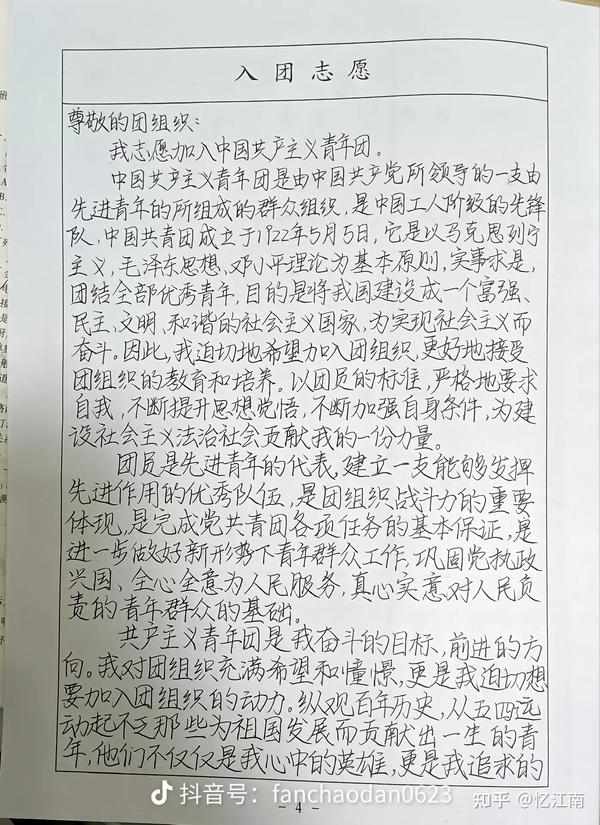 入团志愿
尊敬的团组织：
我志愿加入中国共产主义青年团。
中国共产主义青年团是由中国共产党所领导的一支由
先进青年的所组成的群众组织，是中国工人阶级的先锋
队，中国共青团成立于1922年5月5日，它是以马克思列宁
主义，毛泽东思想，邓小平理论为基本原则，实事求是，
团结全部优秀青年，目的是将我国建设成一个富强、
民主、文明、和谐的社会主义国家，为实现社会主义而
奋斗。因此，我迫切地希望加入团组织，更好地接受
团组织的教育和培养。以团员的标准，严格地要求
自我，不断提升思想觉悟，不断加强自身条件，为建
设社会主义法治社会贡献我的一份力量。
团员是先进青年的代表，建立一支能够发挥
先进作用的优秀队伍，是团组织战斗力的重要
体现，是完成党共青团各项任务的基本保证，是
进一步做好新形势下青年群众工作，巩固党执政
兴国、全心全意为人民服务，真心实意对人民负
责的青年群众的基础。
共产主义青年团是我奋斗的目标，前进的方
向。我对团组织充满希望和憧憬，更是我迫切想
要加入团组织的动力。纵观百年历史，从五四运
动起不乏那些为祖国发展而贡献出一生的青
年，他们不仅仅是我心中的英雄，更是我追求的
抖音号：fanchaodan0623
知乎 @忆江南
- 4 -